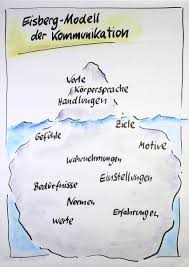 Eisberg-Modell
der Kommunikation
Worte
Körpersprache
Handlungen
Ziele
Gefühle
Motive
Wahrnehmungen
Einstellungen
Bedürfnisse
Normen
Erfahrungen
Werte